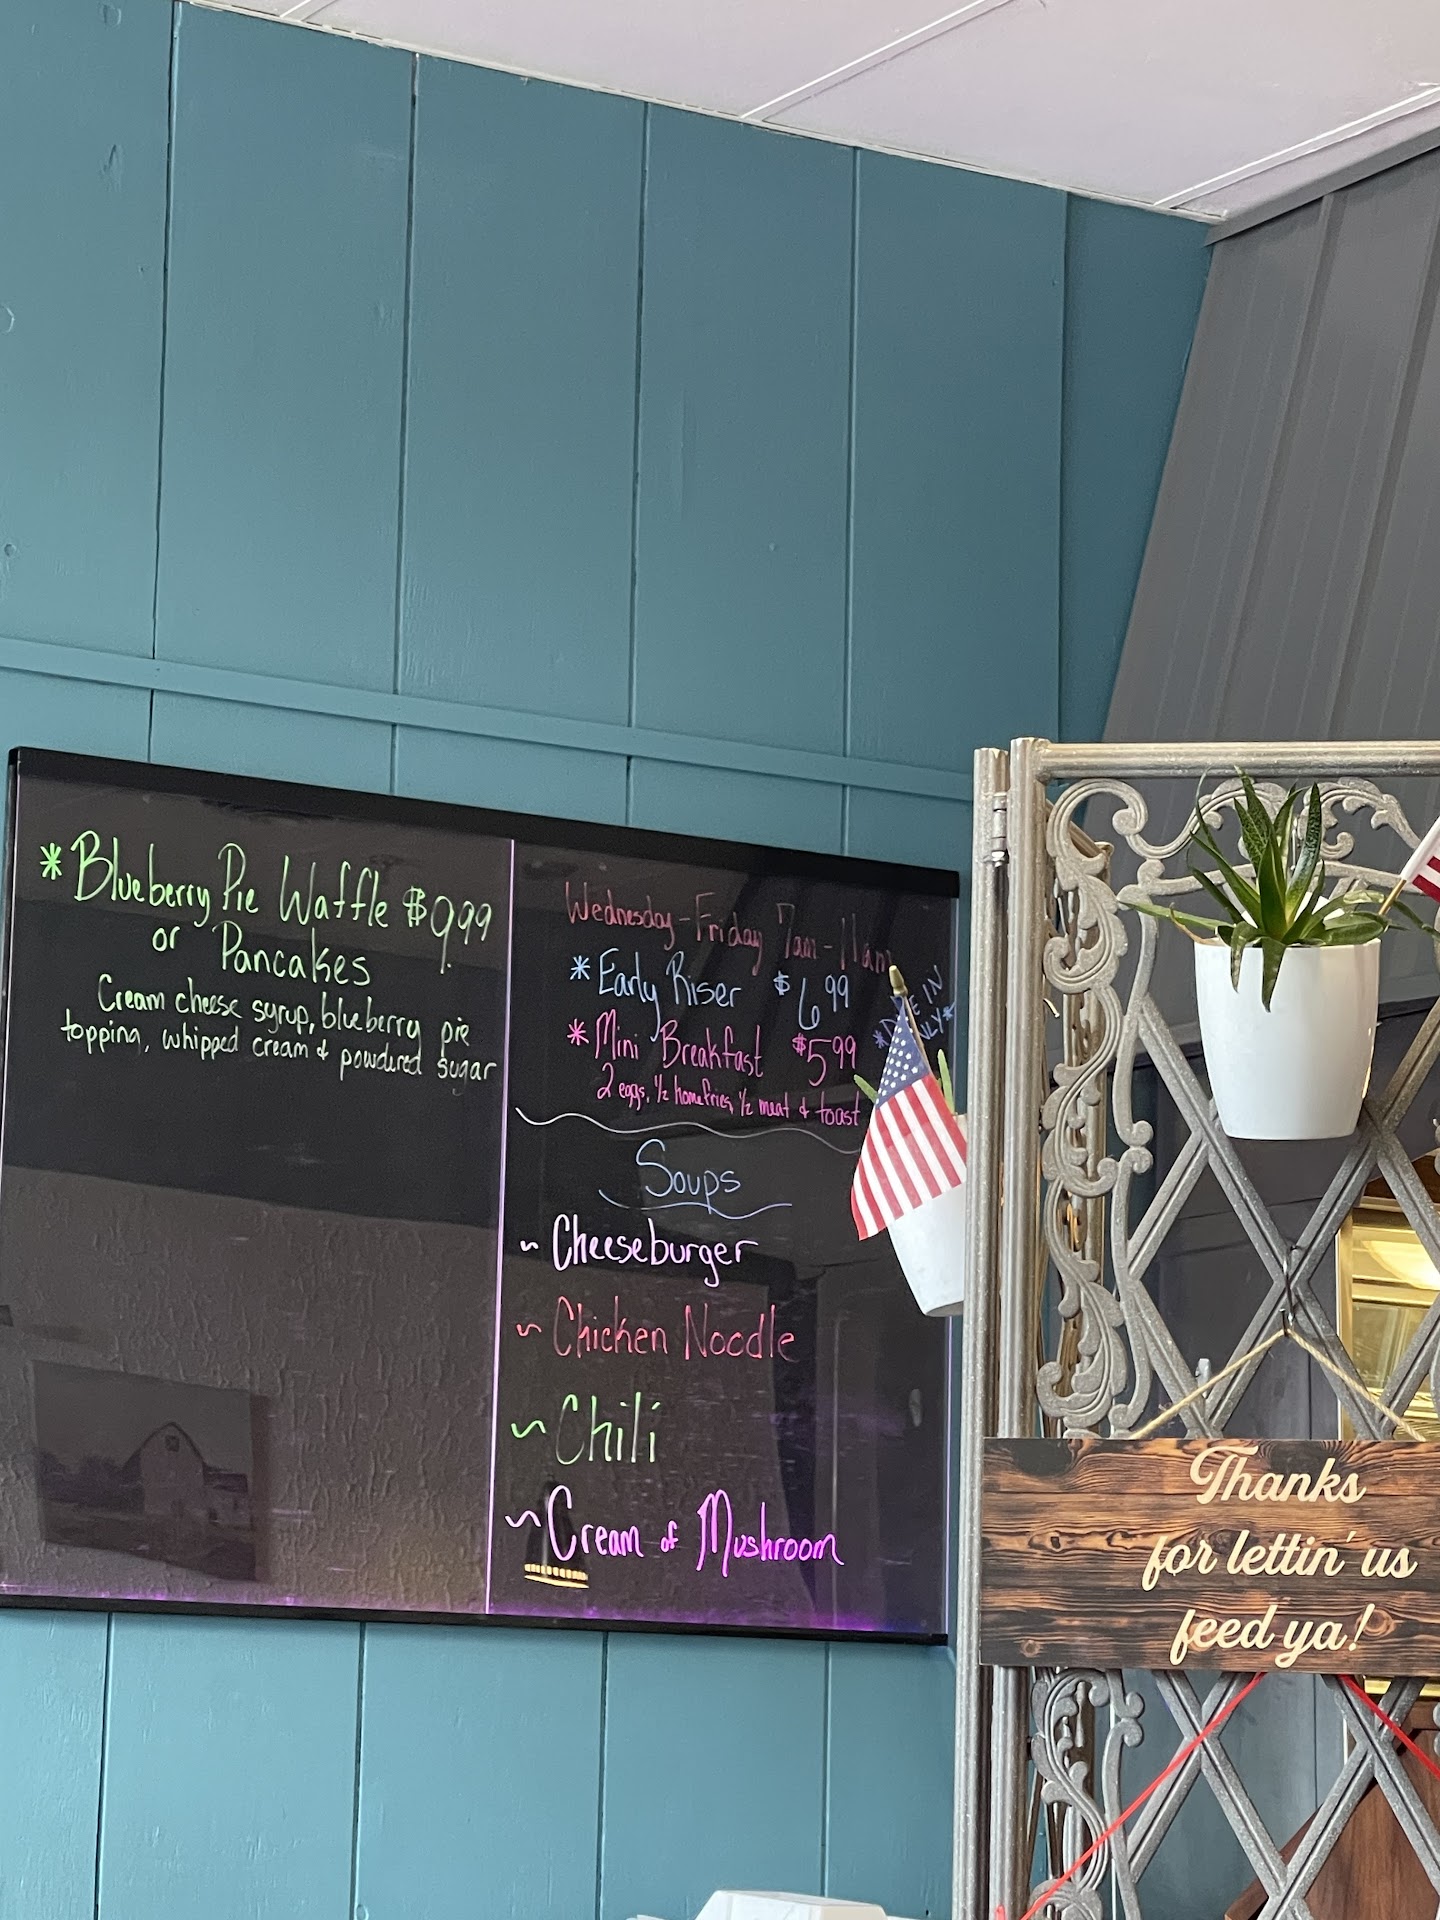 *Blueberry Pie Waffle $9.99
or Pancakes
Cream cheese syrup, blueberry pie
topping, whipped cream & powdered sugar
Wednesday-Friday 7am-11am
*Early Riser $6.99
*Mini Breakfast $5.99
2 eggs, 1/2 homefries, 1/2 meat & toast
Soups
~ Cheeseburger
~ Chicken Noodle
~ Chili
~ Cream of Mushroom
Thanks
for lettin' us
feed ya!